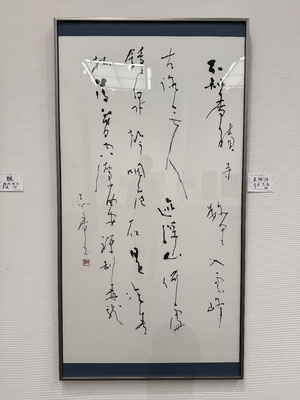 不知香積寺數里入雲峰
古木無人逕深山何處
鐘泉聲咽危石日色冷青
松薄暮空潭曲安禪制毒龍